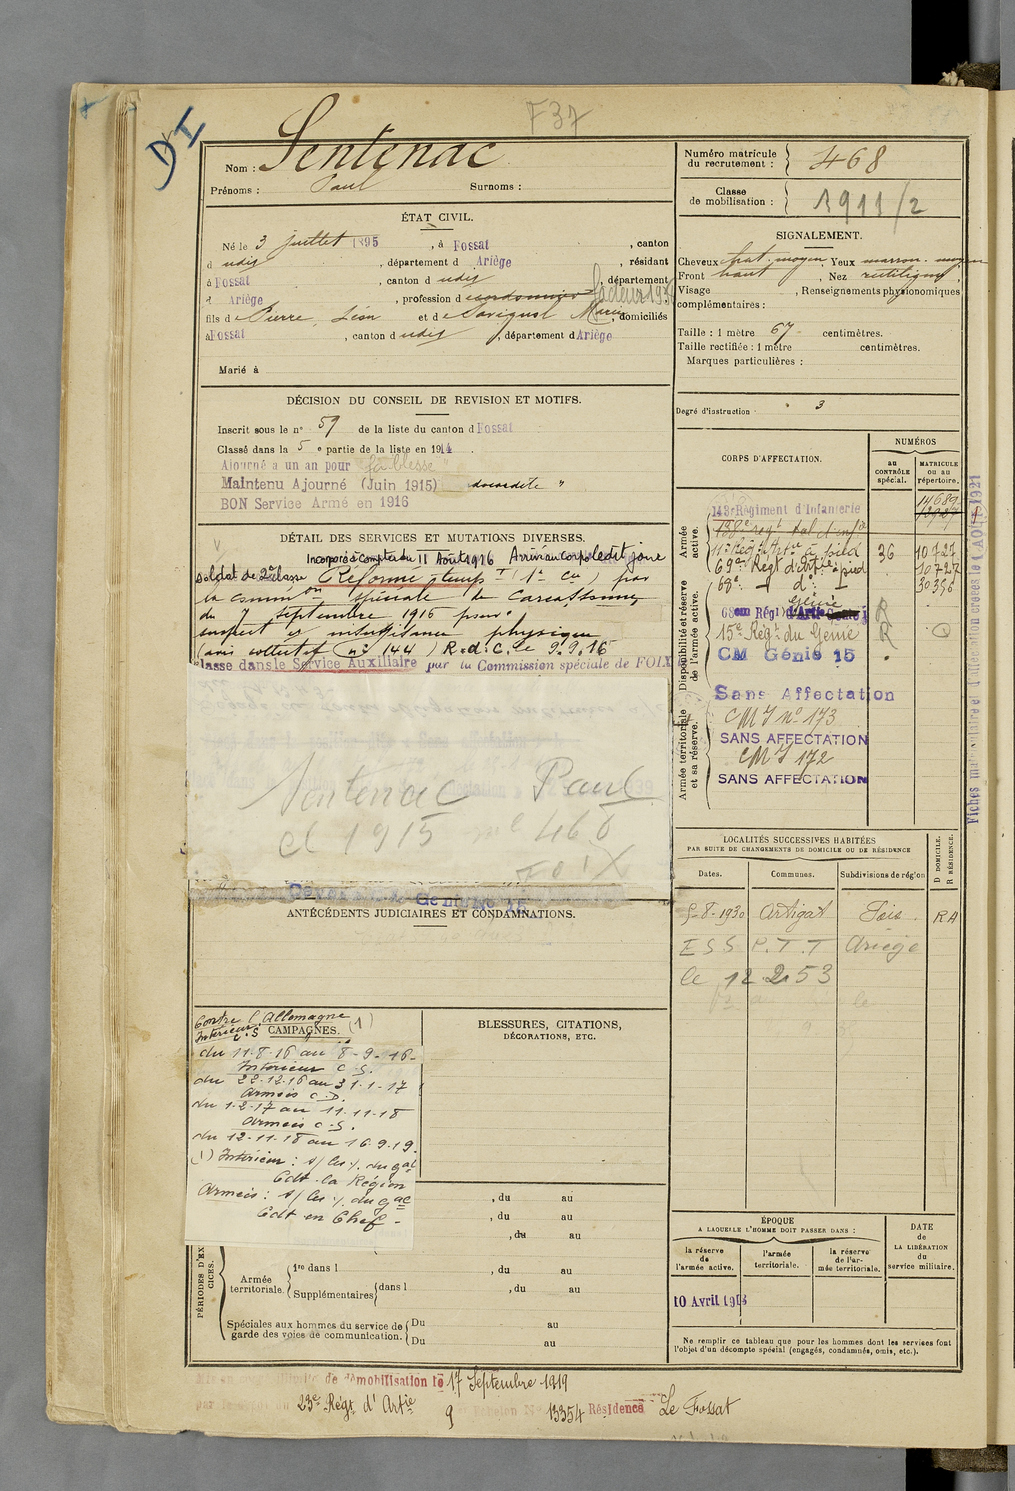 DI
F37
Nom : Sentenac
Prénoms : Paul Surnoms :
Numéro matricule du recrutement : 468
Classe de mobilisation : 1911/2
ÉTAT CIVIL.
Né le 3 juillet 1895, à Fossat, canton
d udis, département d Ariège, résidant
à Fossat, canton d udis, département
d Ariège, profession d cordonnier facteur
fils de Pierre, Léon et de Marie, domiciliés
à Fossat, canton d udis, département d Ariège
Marié à
SIGNALEMENT.
Cheveux chat. moyen, Yeux marron moyen
Front haut, Nez rectiligne,
Visage , Renseignements physionomiques
complémentaires :
Taille : 1 mètre 67 centimètres.
Taille rectifiée : 1 mètre centimètres.
Marques particulières :
Degré d'instruction 3
DÉCISION DU CONSEIL DE REVISION ET MOTIFS.
Inscrit sous le n° 59 de la liste du canton d Fossat
Classé dans la 5e partie de la liste en 1914.
Ajourné a un an pour faiblesse
Maintenu Ajourné (Juin 1915)
BON Service Armé en 1916
DÉTAIL DES SERVICES ET MUTATIONS DIVERSES.
Incorporé à compter du 11 Août 1916 Arrivé au corps le dit jour
Soldat de 2e classe Réformé temp (1re cie) par
la common spéciale de Carcassonne
du 7 septembre 1916 pour
insuffisance physique
(avis collectif n° 144) R.d.C. le 9.9.16
Classe dans le Service Auxiliaire par la Commission spéciale de FOIX
Sentenac Paul
cl 1915 ml 468
FOIX
Génie No 15
CORPS D'AFFECTATION.
NUMÉROS
au CONTRÔLE spécial.
MATRICULE ou au répertoire.
Armée active.
143e Régiment d'Infanterie 14689
12927
36 10727
69e Régt d'Artie à pied 10727
68e do 30356
Disponibilité et réserve de l'armée active.
68eme Régt Génie R
15e Régt du Génie R
CM Génie 15
Sans Affectation
Armée territoriale et sa réserve.
CMI n° 173
SANS AFFECTATION
CMI 172
SANS AFFECTATION
Fiches
LOCALITÉS SUCCESSIVES HABITÉES
PAR SUITE DE CHANGEMENTS DE DOMICILE OU DE RÉSIDENCE
D DOMICILE. R RÉSIDENCE.
Dates. Communes. Subdivisions de région
5-8-1930 Artigat Foix. RA
ESS P.T.T Ariège
le 12 2 53
ANTÉCÉDENTS JUDICIAIRES ET CONDAMNATIONS.
Contre l'Allemagne
Intérieur C.S CAMPAGNES. (1)
du 11-8-16 au 8-9-16-
Intérieur C.S.
du 22-12-16 au 31-1-17
Armées C.D.
du 1-2-17 au 11-11-18
Armées C.S.
du 12-11-18 au 16.9.19.
(1) Intérieur : s/ les o. du gal
Cdt la Région
Armées : s/ les o. du gal
Cdt en Chef -
BLESSURES, CITATIONS,
DÉCORATIONS, ETC.
, du au
, du au
, du au
PÉRIODES D'EXERCICES.
Armée territoriale. 1re dans l , du au
Supplémentaires dans l , du au
Spéciales aux hommes du service de garde des voies de communication. Du au
Du au
ÉPOQUE
A LAQUELLE L'HOMME DOIT PASSER DANS :
DATE de LA LIBÉRATION du service militaire.
la réserve de l'armée active.
l'armée territoriale.
la réserve de l'armée territoriale.
10 Avril
Ne remplir ce tableau que pour les hommes dont les services font
l'objet d'un décompte spécial (engagés, condamnés, omis, etc.).
de démobilisation le 17 Septembre 1919
23e Régt d'Artie 9 Echelon N° 13354 Résidence Le Fossat